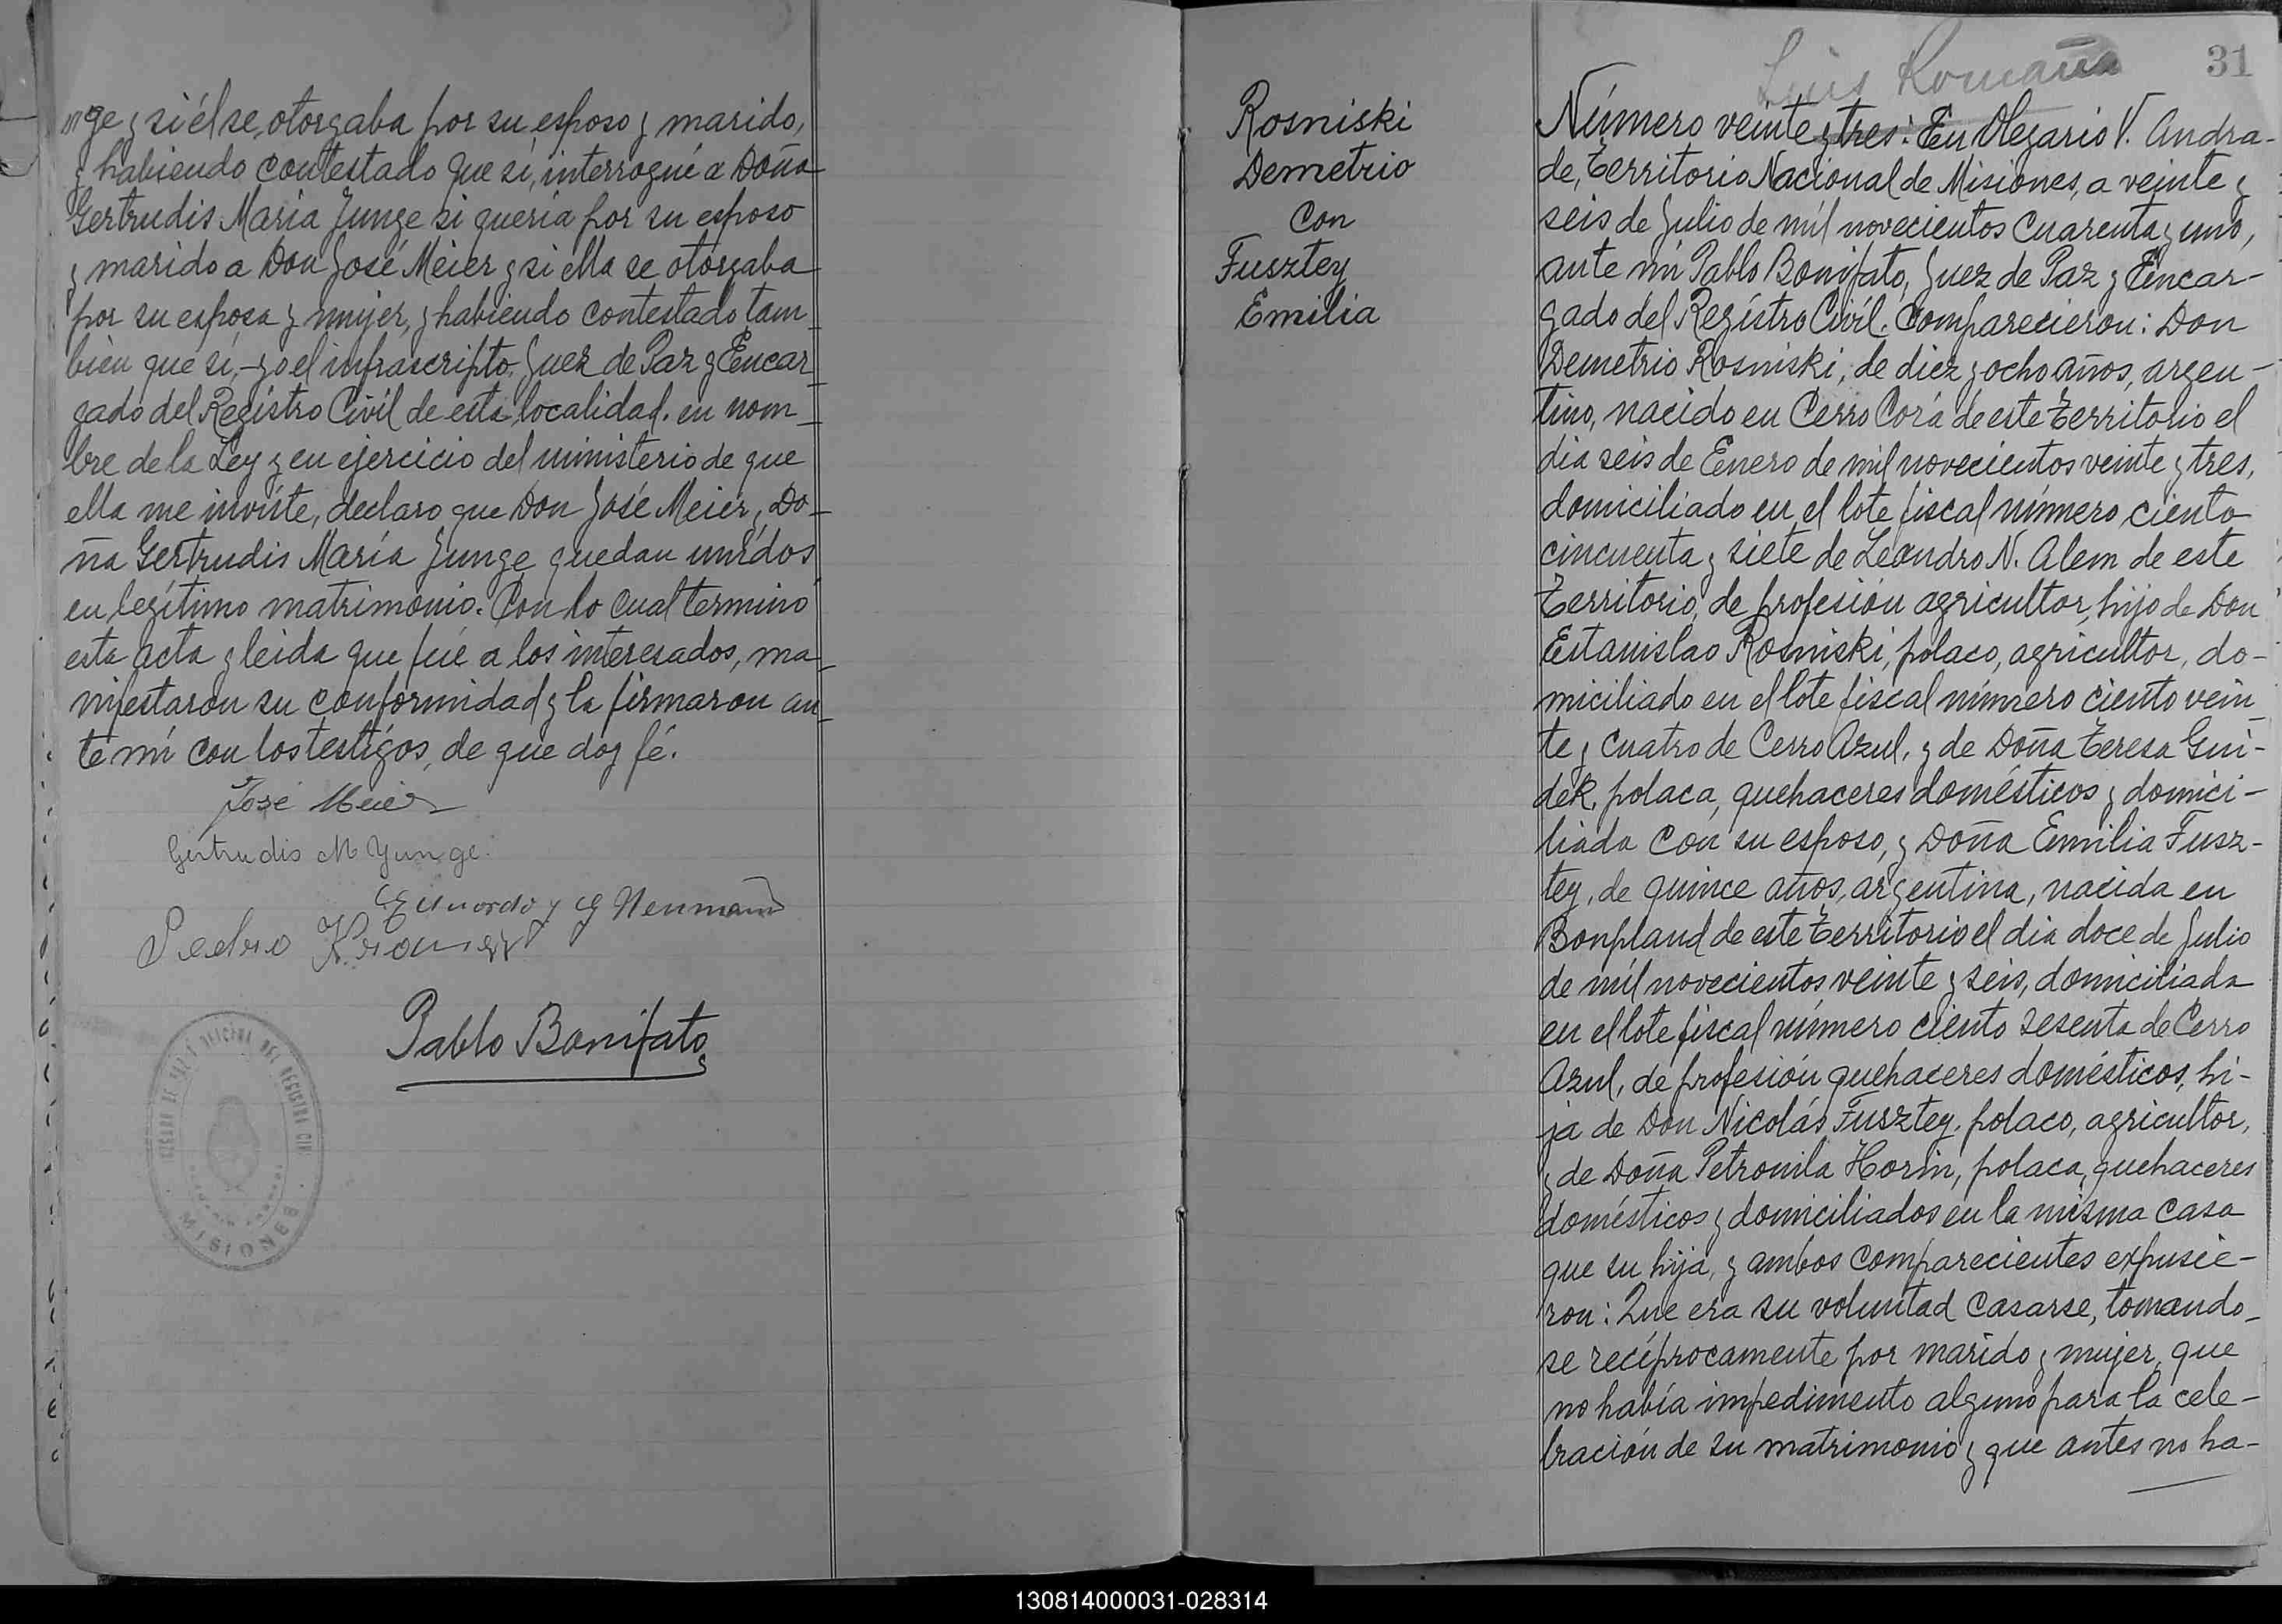 nge y si él se otorgaba por su esposo y marido,
y habiendo contestado que sí, interrogué a Doña
Gertrudis María Junge si quería por su esposo
y marido a Don José Meier y si ella se otorgaba
por su esposa y mujer, y habiendo contestado tam-
bién que sí,- yo el infrascripto Juez de Paz y Encar-
gado del Registro Civil de esta localidad, en nom-
bre de la Ley y en ejercicio del ministerio de que
ella me inviste, declaro que Don José Meier y Do-
ña Gertrudis María Junge quedan unidos
en legítimo matrimonio. Con lo cual terminó
esta acta y leida que fué a los interesados, ma-
nifestaron su conformidad y la firmaron an-
te mí con los testigos, de que doy fé.
José Meier
Gertrudis M Yunge.
G Neumann
Pedro
Pablo Bonifato
REGISTRO CIVIL
MISIONES
Rosniski
Demetrio
Con
Fusztey
Emilia
Luis Romaña
31
Número veinte y tres: En Olegario V. Andra-
de, Territorio Nacional de Misiones, a veinte y
seis de Julio de mil novecientos cuarenta y uno,
ante mí Pablo Bonifato, Juez de Paz y Encar-
gado del Registro Civil. Comparecieron: Don
Demetrio Rosniski, de diez y ocho años, argen-
tino, nacido en Cerro Corá de este Territorio el
día seis de Enero de mil novecientos veinte y tres,
domiciliado en el lote fiscal número ciento
cincuenta y siete de Leandro N. Alem de este
Territorio, de profesión agricultor, hijo de Don
Estanislao Rosniski, polaco, agricultor, do-
miciliado en el lote fiscal número ciento vein-
te y cuatro de Cerro Azul, y de Doña Teresa Gui-
dek, polaca, quehaceres domésticos y domici-
liada con su esposo, y Doña Emilia Fusz-
tey, de quince años, argentina, nacida en
Bonpland de este Territorio el día doce de Julio
de mil novecientos veinte y seis, domiciliada
en el lote fiscal número ciento sesenta de Cerro
Azul, de profesión quehaceres domésticos, hi-
ja de Don Nicolás Fusztey, polaco, agricultor,
y de Doña Petronila Horin, polaca, quehaceres
domésticos y domiciliados en la misma casa
que su hija, y ambos comparecientes expusie-
ron: Que era su voluntad casarse, tomando-
se recíprocamente por marido y mujer, que
no había impedimento alguno para la cele-
bración de su matrimonio y que antes no ha-
130814000031-028314